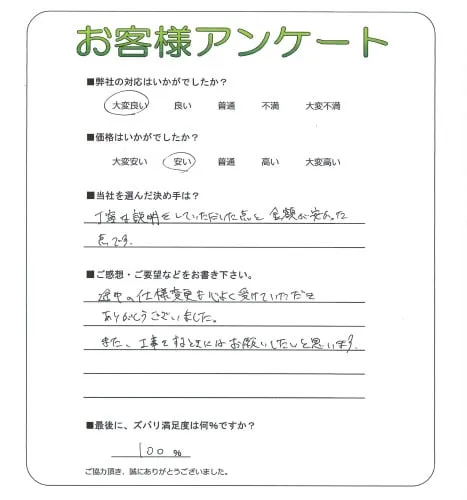 お客様アンケート
■弊社の対応はいかがでしたか？
大変良い 良い 普通 不満 大変不満
■価格はいかがでしたか？
大変安い 安い 普通 高い 大変高い
■当社を選んだ決め手は？
丁寧な説明をしていただいた点と金額が安かった
点です。
■ご感想・ご要望などをお書き下さい。
途中の仕様変更も心よく受けていただき
ありがとうございました。
また、工事をするときにはお願いしたいと思います。
■最後に、ズバリ満足度は何%ですか？
100 %
ご協力頂き、誠にありがとうございました。